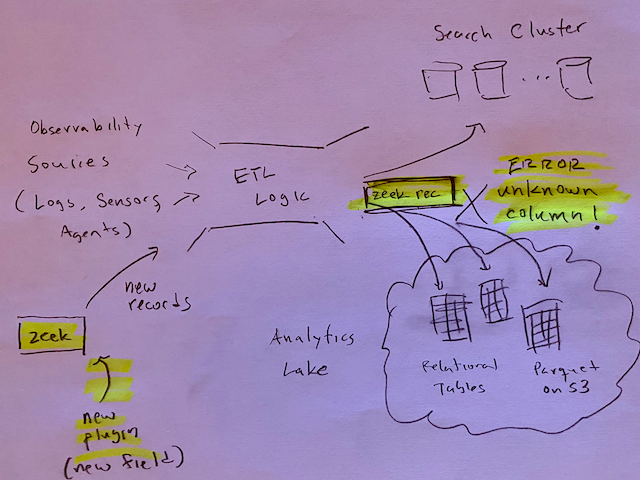 Search Cluster
...
Observability
Sources
(Logs, Sensors,
Agents)
ETL
Logic
zeek rec
ERROR
unknown
column!
new
records
zeek
new
plugin
(new field)
Analytics
Lake
Relational
Tables
Parquet
on S3